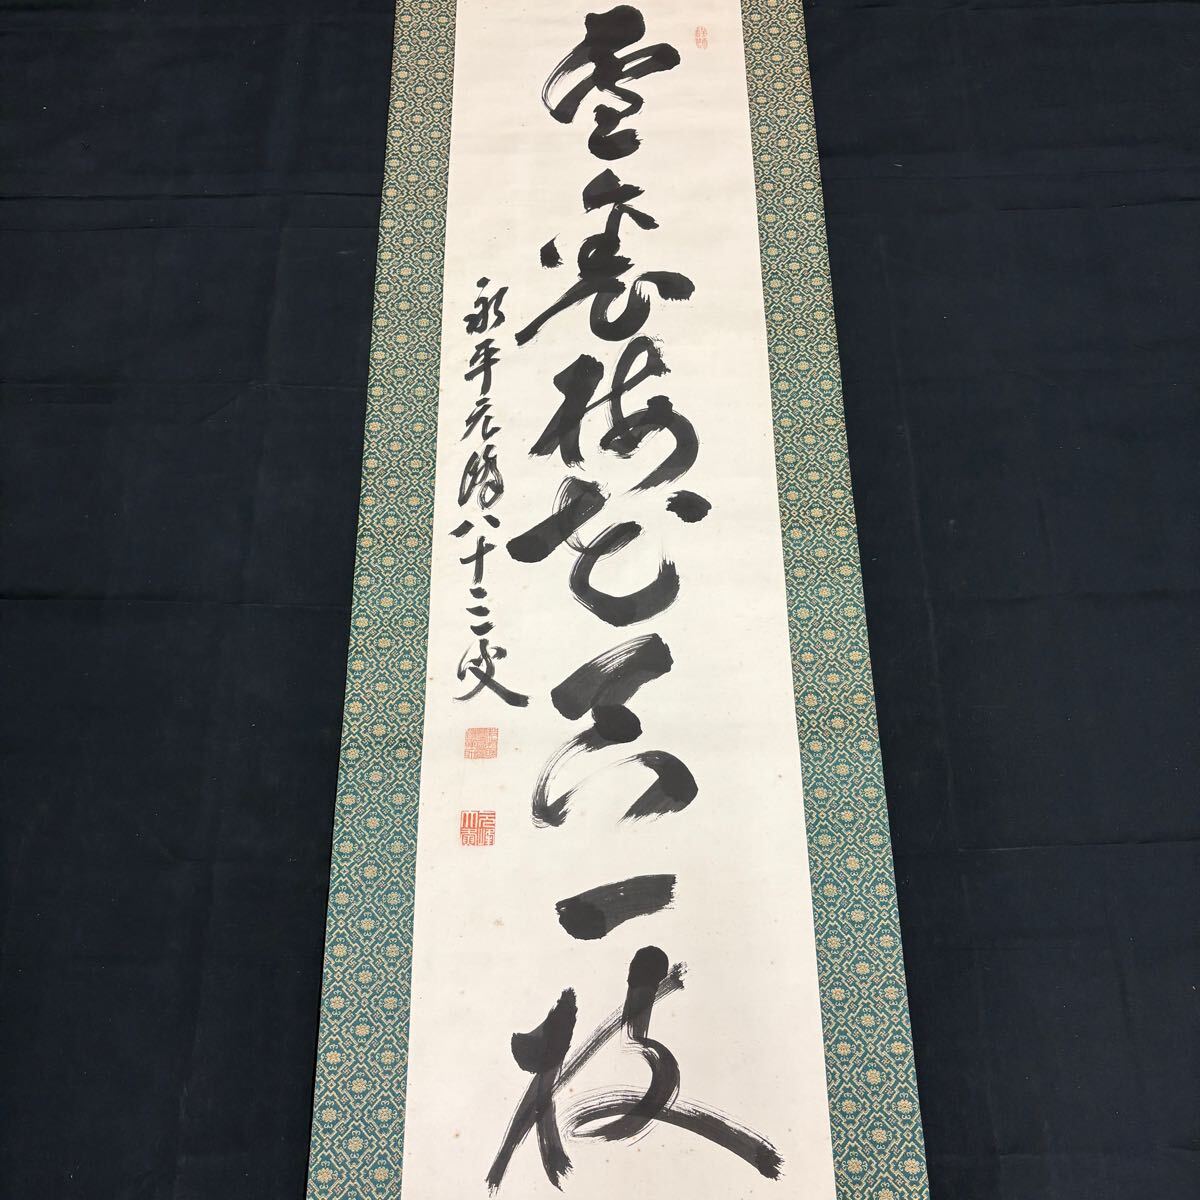 雪裏梅花只一枝
永平元峰八十二叟
元峰